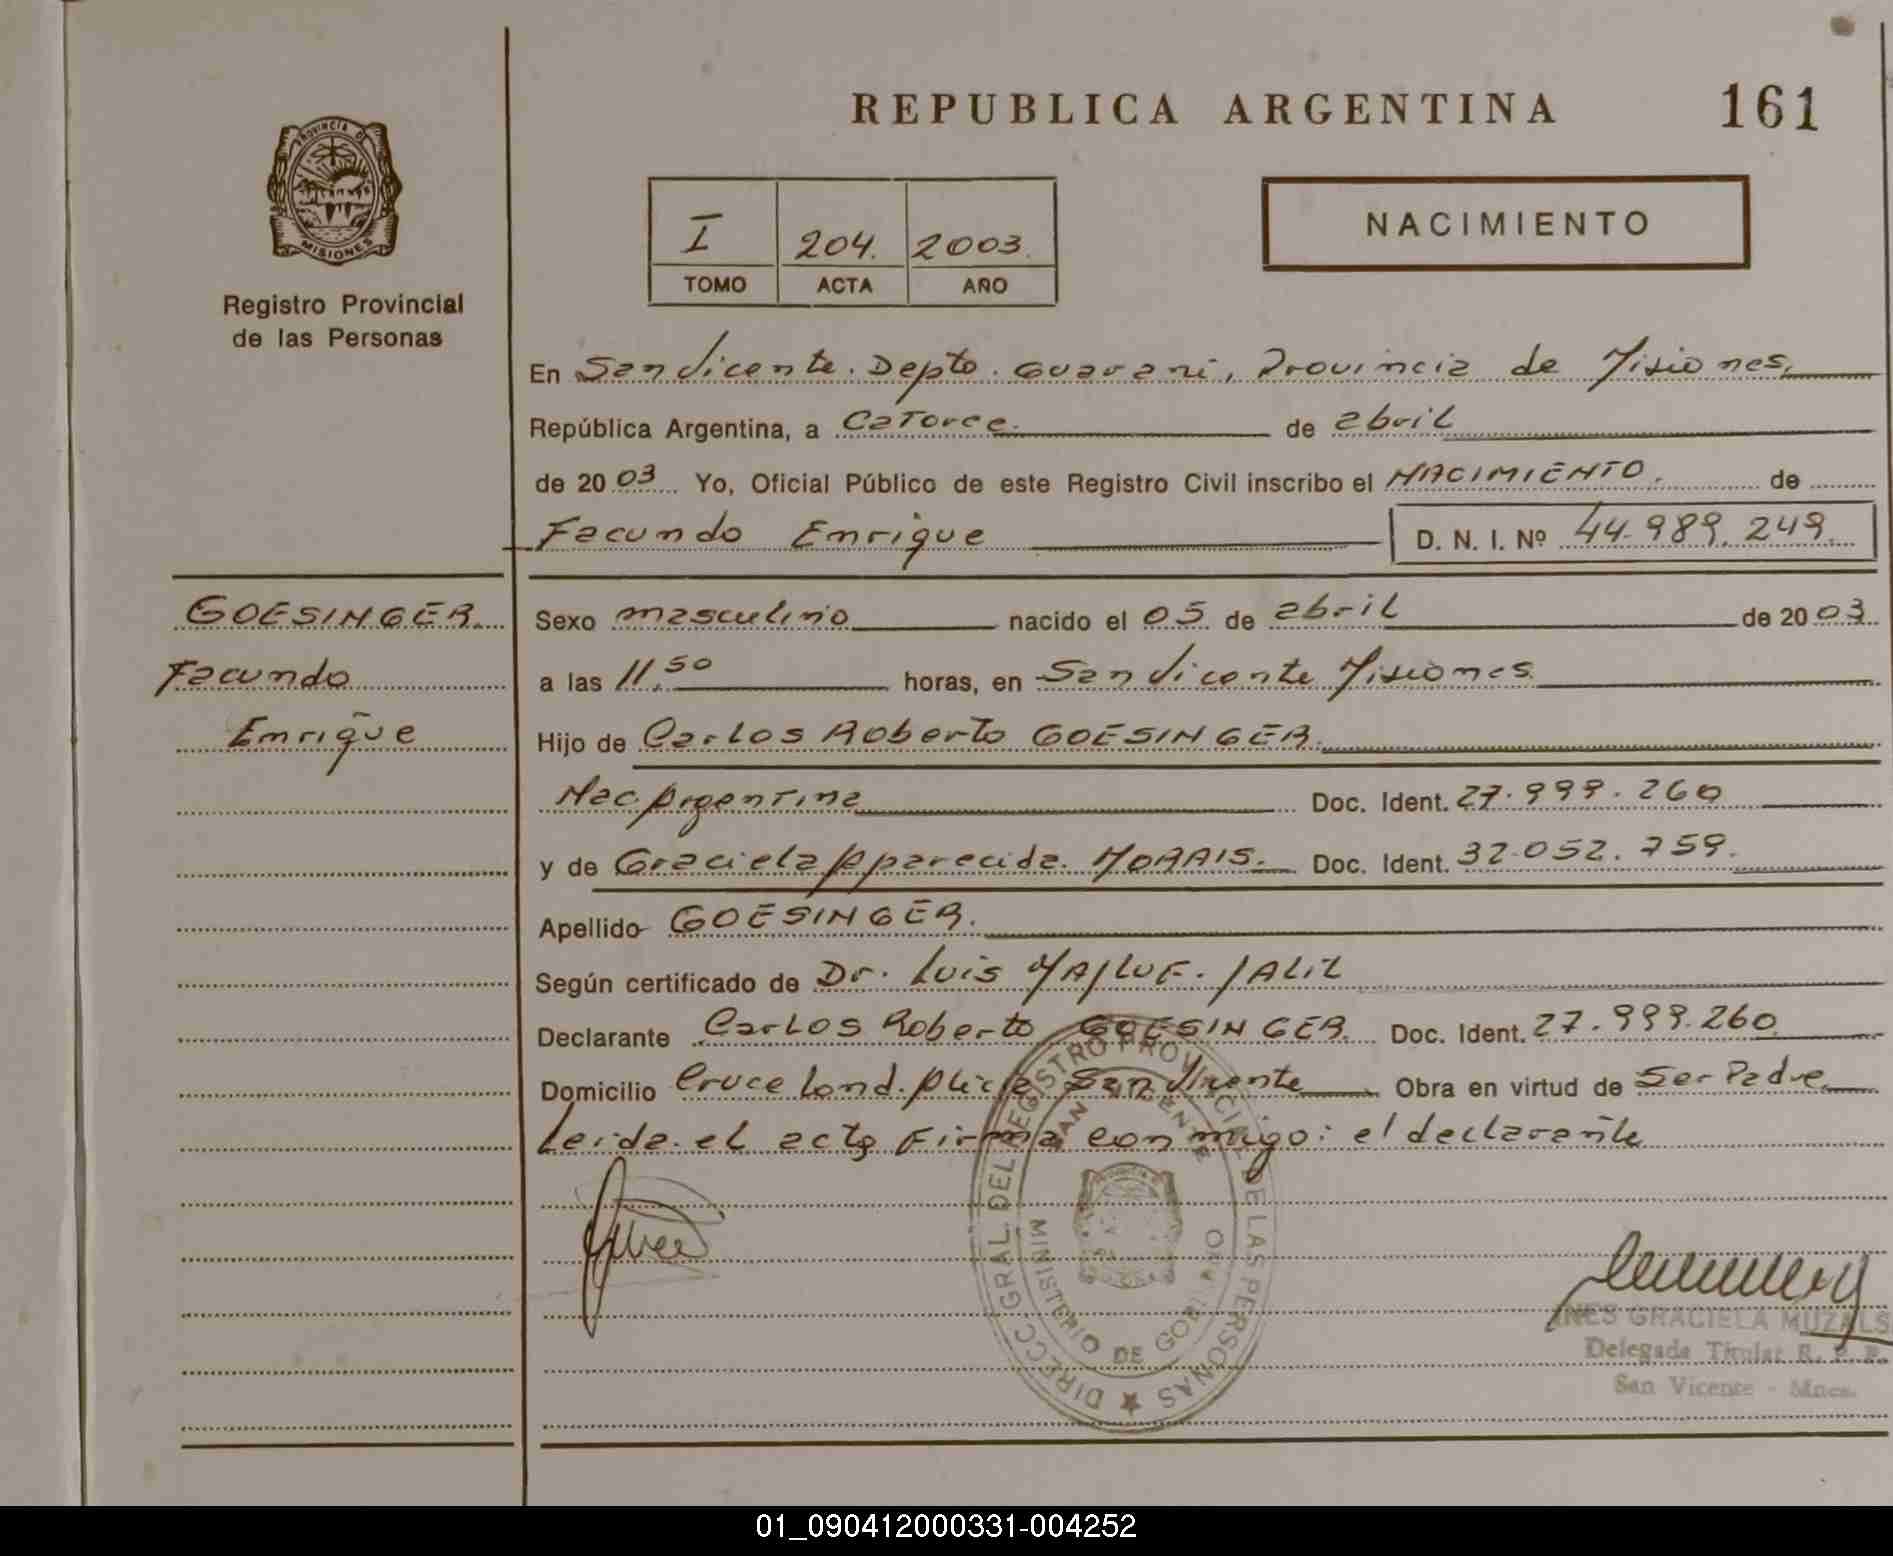 REPUBLICA ARGENTINA 161
PROVINCIA DE
MISIONES
Registro Provincial
de las Personas
I 204. 2003.
TOMO ACTA AÑO
NACIMIENTO
En San Vicente. Depto. Guarani, Provincia de Misiones.
República Argentina, a Catorce. de abril
de 2003 Yo, Oficial Público de este Registro Civil inscribo el NACIMIENTO. de
Facundo Enrique D. N. I. Nº 44.989.249.
GOESINGER.
Facundo
Enrique
Sexo masculino nacido el 05 de abril de 2003.
a las 11,50 horas, en San Vicente Misiones.
Hijo de Carlos Roberto GOESINGER.
Nac Argentina Doc. Ident. 27.999.260
y de Graciela Aparecida. MORAIS. Doc. Ident. 32.052.759.
Apellido GOESINGER.
Según certificado de Dr. Luis JALIL
Declarante Carlos Roberto GOESINGER. Doc. Ident. 27.999.260
Domicilio Cruce San Vicente Obra en virtud de Ser Padre
Leida el acta Firma conmigo: el declarante
DIRECC. GRAL. DEL REGISTRO PROVINCIAL DE LAS PERSONAS
SAN VICENTE
MINISTERIO DE GOBIERNO
INES GRACIELA MUZALS
Delegada Titular R. P. P.
San Vicente - Mnes.
01_090412000331-004252